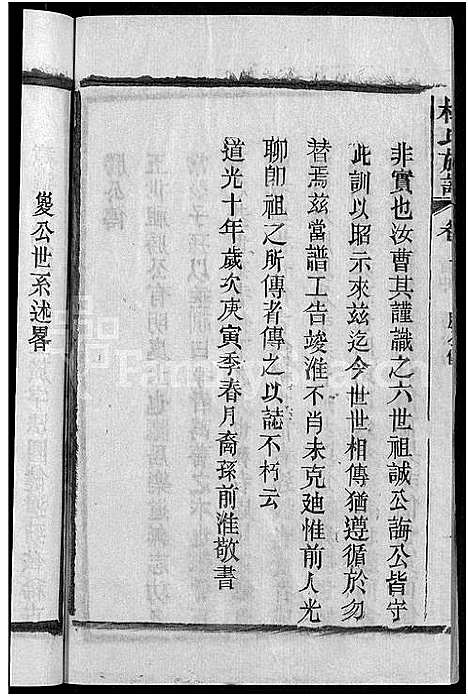 非實也汝曹其謹識之六世祖誠公誨公皆守
此訓以昭示來茲迄今世世相傳猶遵循於勿
替焉茲當譜工告竣淮不肖未克廸惟前人光
聊卽祖之所傳者傳之以誌不朽云
道光十年歲次庚寅季春月裔孫前淮敬書
夔公世系述畧